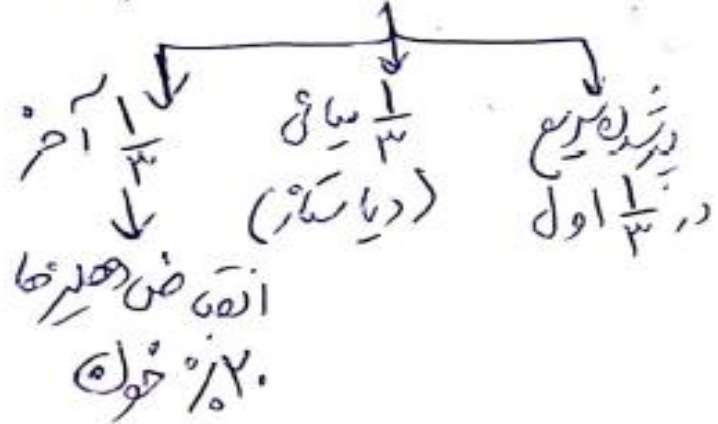 پر شدن سریع
در ۱/۳ اول
۱/۳ میانی
(دیاستاز)
۱/۳ آخر
انقباض دهلیزها
۲۰٪ خون